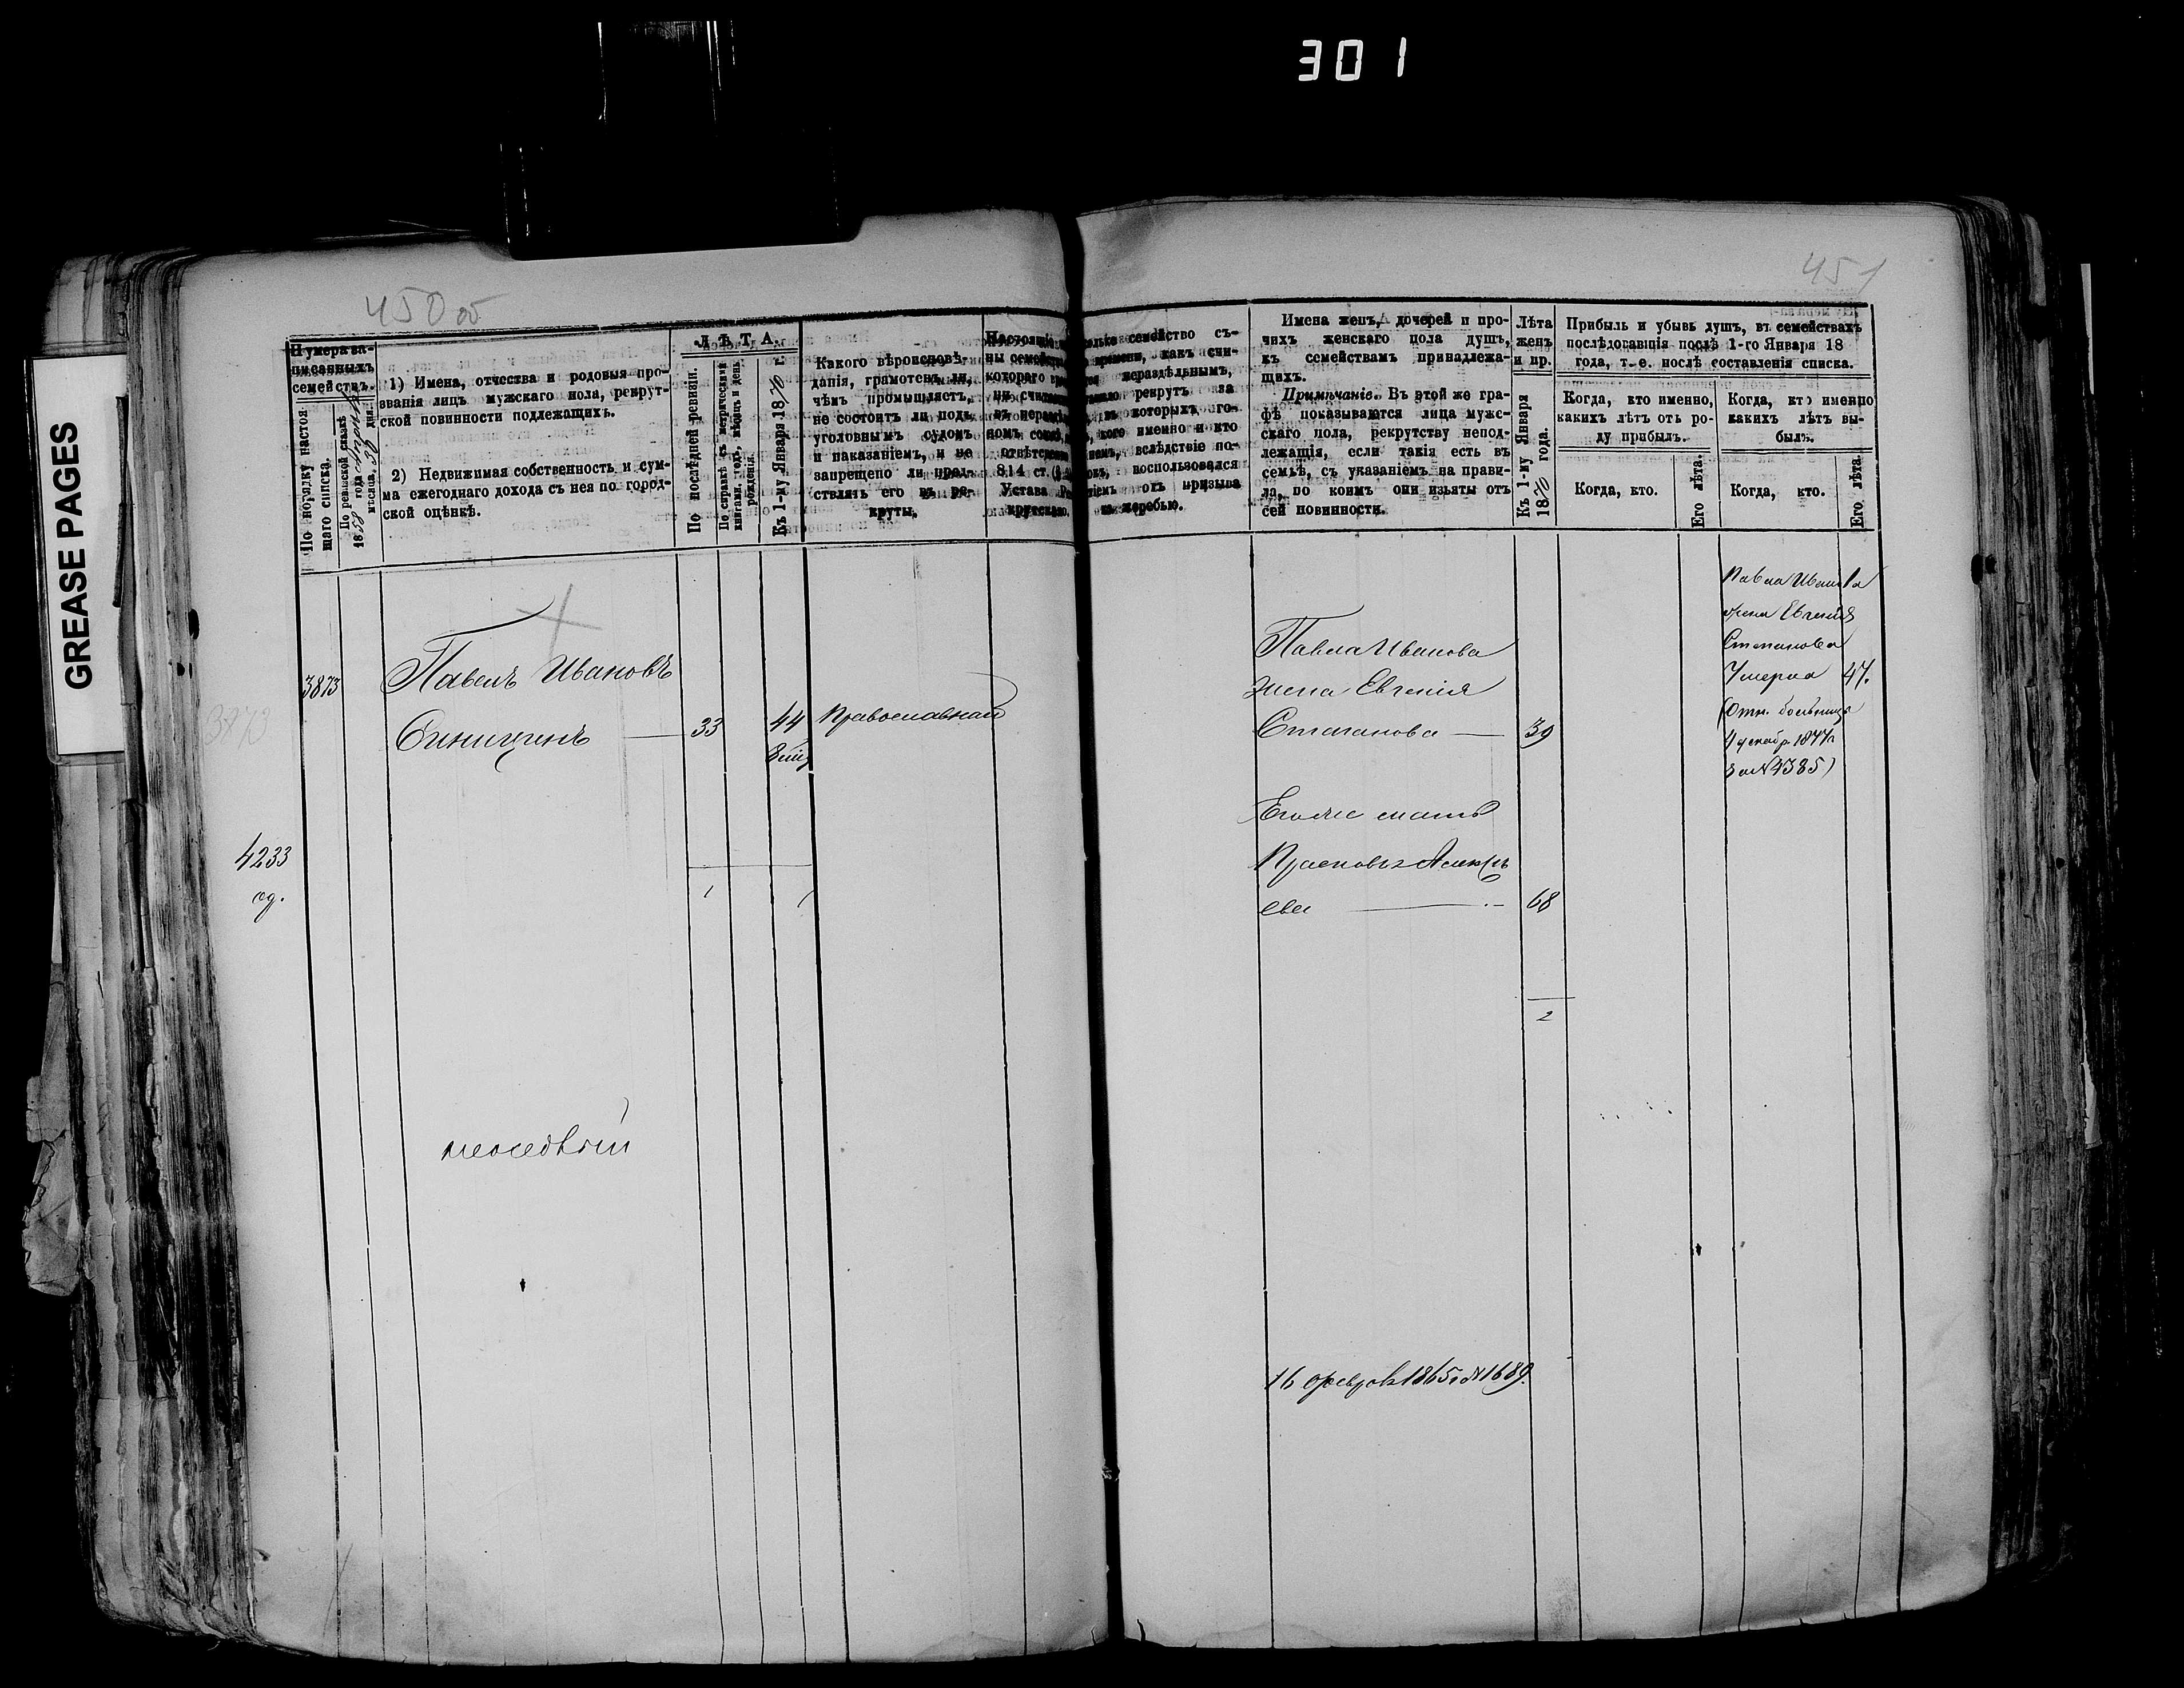 301
GREASE PAGES
450 об
451
Нумера за-
писанныхъ
семействъ.
По порядку настоя-
щаго списка.
По ревизской сказкѣ
1858 года Апрѣля
мѣсяца, 30 дня.
1) Имена, отчества и родовыя про-
званія лицъ мужскаго пола, рекрут-
ской повинности подлежащихъ.
2) Недвижимая собственность и сум-
ма ежегоднаго дохода съ нея по город-
ской оцѣнкѣ.
Л Ѣ Т А.
По послѣдней ревизіи.
По справкѣ съ метрическими
книгами, годъ, мѣсяцъ и день
рожденія.
Къ 1-му Января 1870 г.
Какого вѣроисповѣ-
данія, грамотенъ ли,
чѣмъ промышляетъ,
не состоитъ ли подъ
уголовнымъ судомъ
и наказаніемъ, и не
запрещено ли пред-
ставлять его въ ре-
круты.
семейство съ-
времени, какъ счи-
нераздѣльнымъ,
рекрутъ за
въ которыхъ го-
кого именно и кто
вслѣдствіе по-
воспользовался
отъ призыва
къ жеребью.
Имена женъ, дочерей и про-
чихъ женскаго пола душъ,
къ семействамъ принадлежа-
щихъ.
Примѣчаніе. Въ этой же гра-
фѣ показываются лица мужс-
скаго пола, рекрутству непод-
лежащія, если такія есть въ
семьѣ, съ указаніемъ на прави-
ла, по коимъ они изъяты отъ
сей повинности.
Лѣта
женъ
и пр.
Къ 1-му Января
1870 года.
Прибыль и убыль душъ, въ семействахъ
послѣдовавшія послѣ 1-го Января 18
года, т.-е. послѣ составленія списка.
Когда, кто именно,
какихъ лѣтъ отъ ро-
ду прибылъ.
Когда, кто именно
какихъ лѣтъ вы-
былъ.
Когда, кто.
Его лѣта.
Когда, кто.
Его лѣта.
3873
Павелъ Ивановъ
Синицинъ — 33 44 Православнай
3873
4233
1 1
Павла Иванова
жена Евгенія
Степанова — 39
Егоже мать
Прасковья Алексѣ
ева — 68
2
Павла Иванова
жена Евгенія
Степанова
Умерла 47.
(Отн. больницы
за №4385)
16 феврал 1865 г. №1689.